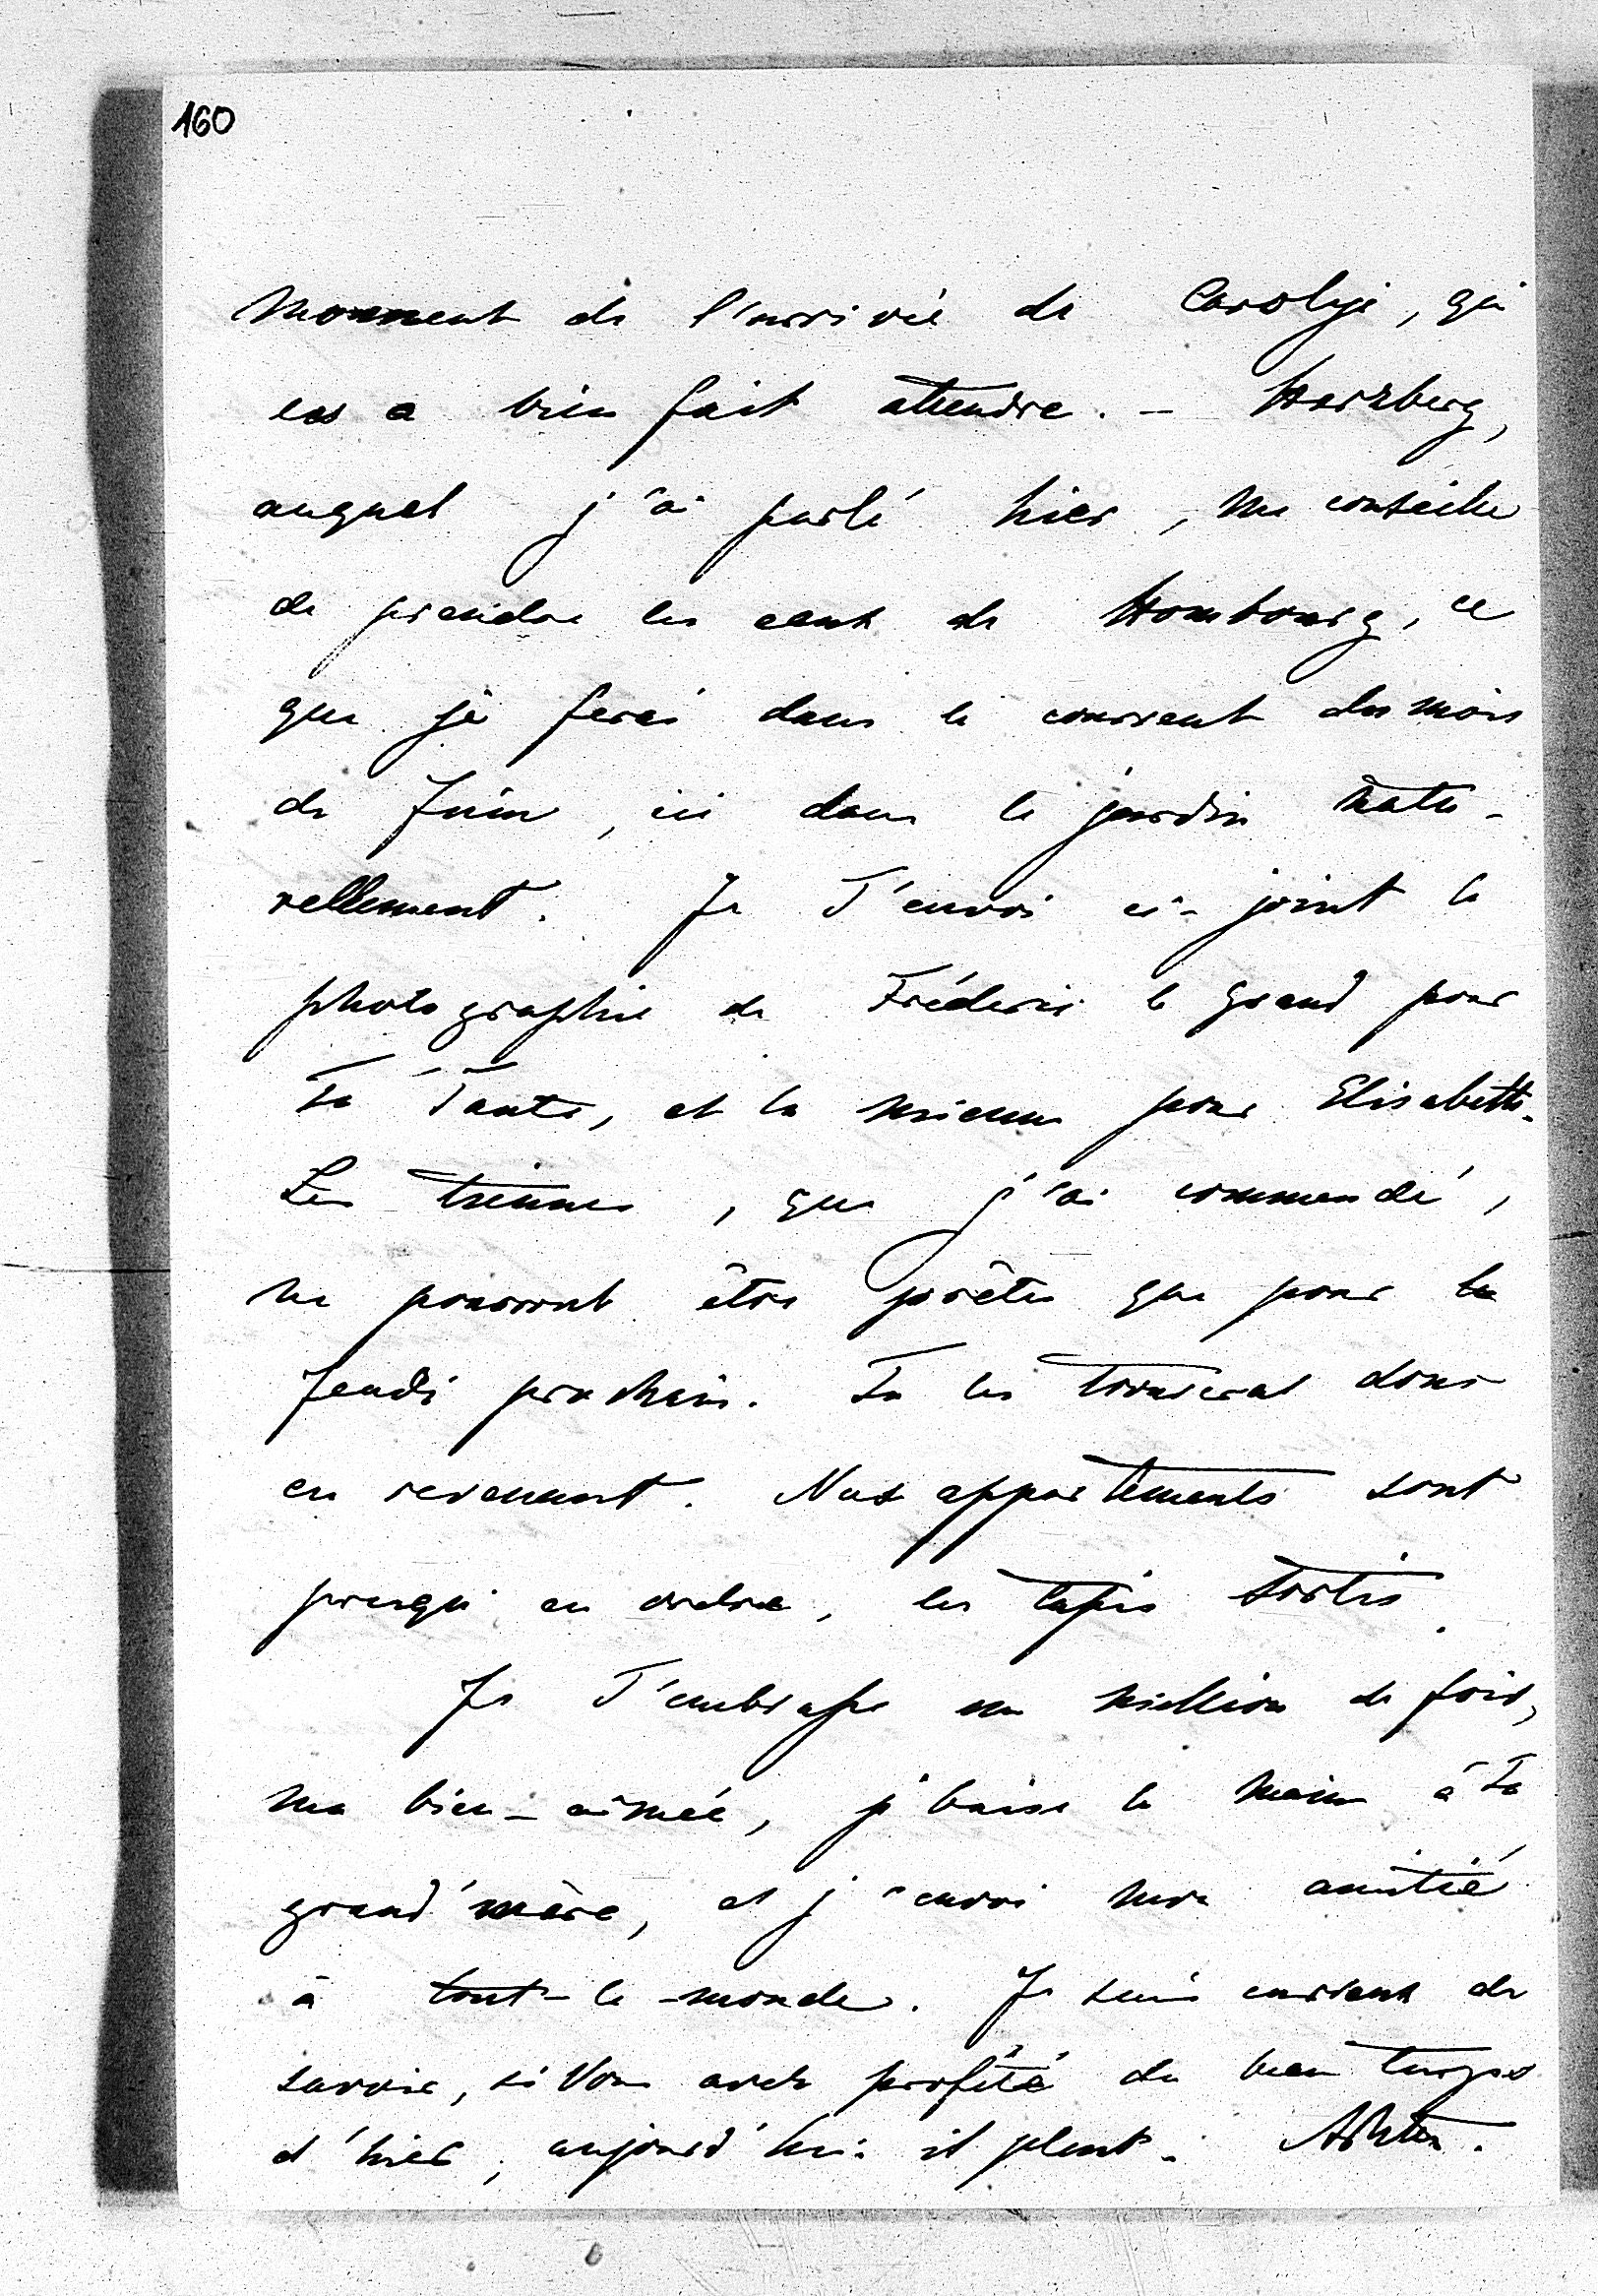 160
moment de l'arrivée de Carolyi, qui
es a bien fait attendre. – Herzberg,
auquel j'ai parlé hier, me conseille
de prendre les eaux de Hombourg, ce
que je ferai dans le courrent du mois
de Juin, ici dans le jardin natu-
rellement. Je T'envoi ci-joint la
photographie de Fréderic le grand pour
Ta Tante, et la mienne pour Elisabeth.
Les tiennes, que j'ai commandé,
ne pourront être prêtes que pour
Jeudi prochain. Tu les trouveras donc
en revenant. Nos appartements sont
presque en ordre, les tapis sortis.
Je T'embrasse un million de fois,
ma bien-aimée, je baise la main à Ta
grand'mère, et j'envoi mon amitié
à tout-le-monde. Je suis curieux de
savoir, si Vous avez profité du beau temps
d'hier; aujourd'hui il pleut.